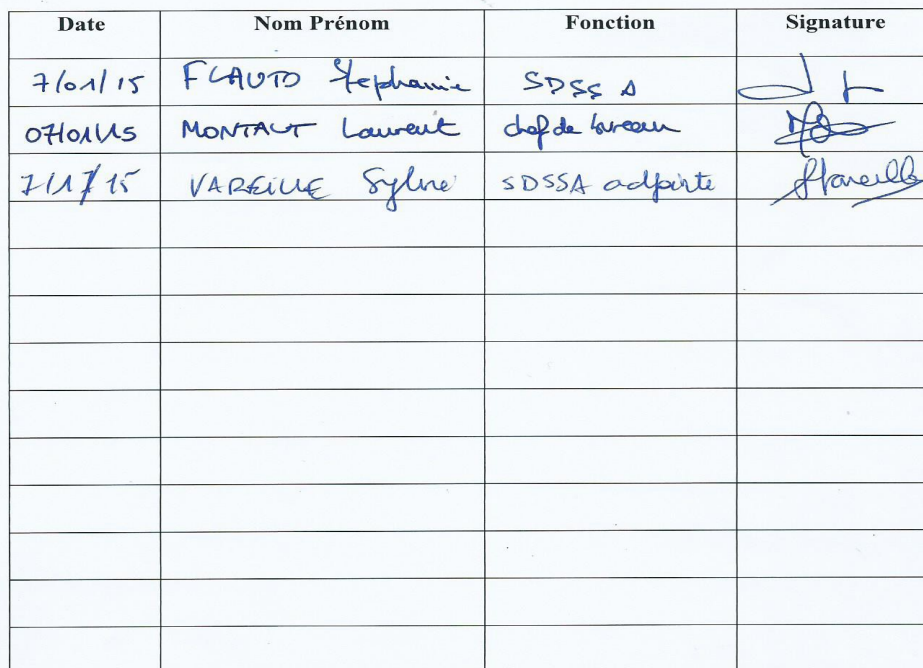 Date Nom Prénom Fonction Signature
7/01/15 FLAUTO Stephanie SDSSA
07/01/15 MONTAUT Laurent chef de bureau
7/1/15 VAREILLE Sylvie SDSSA adjointe Vareille